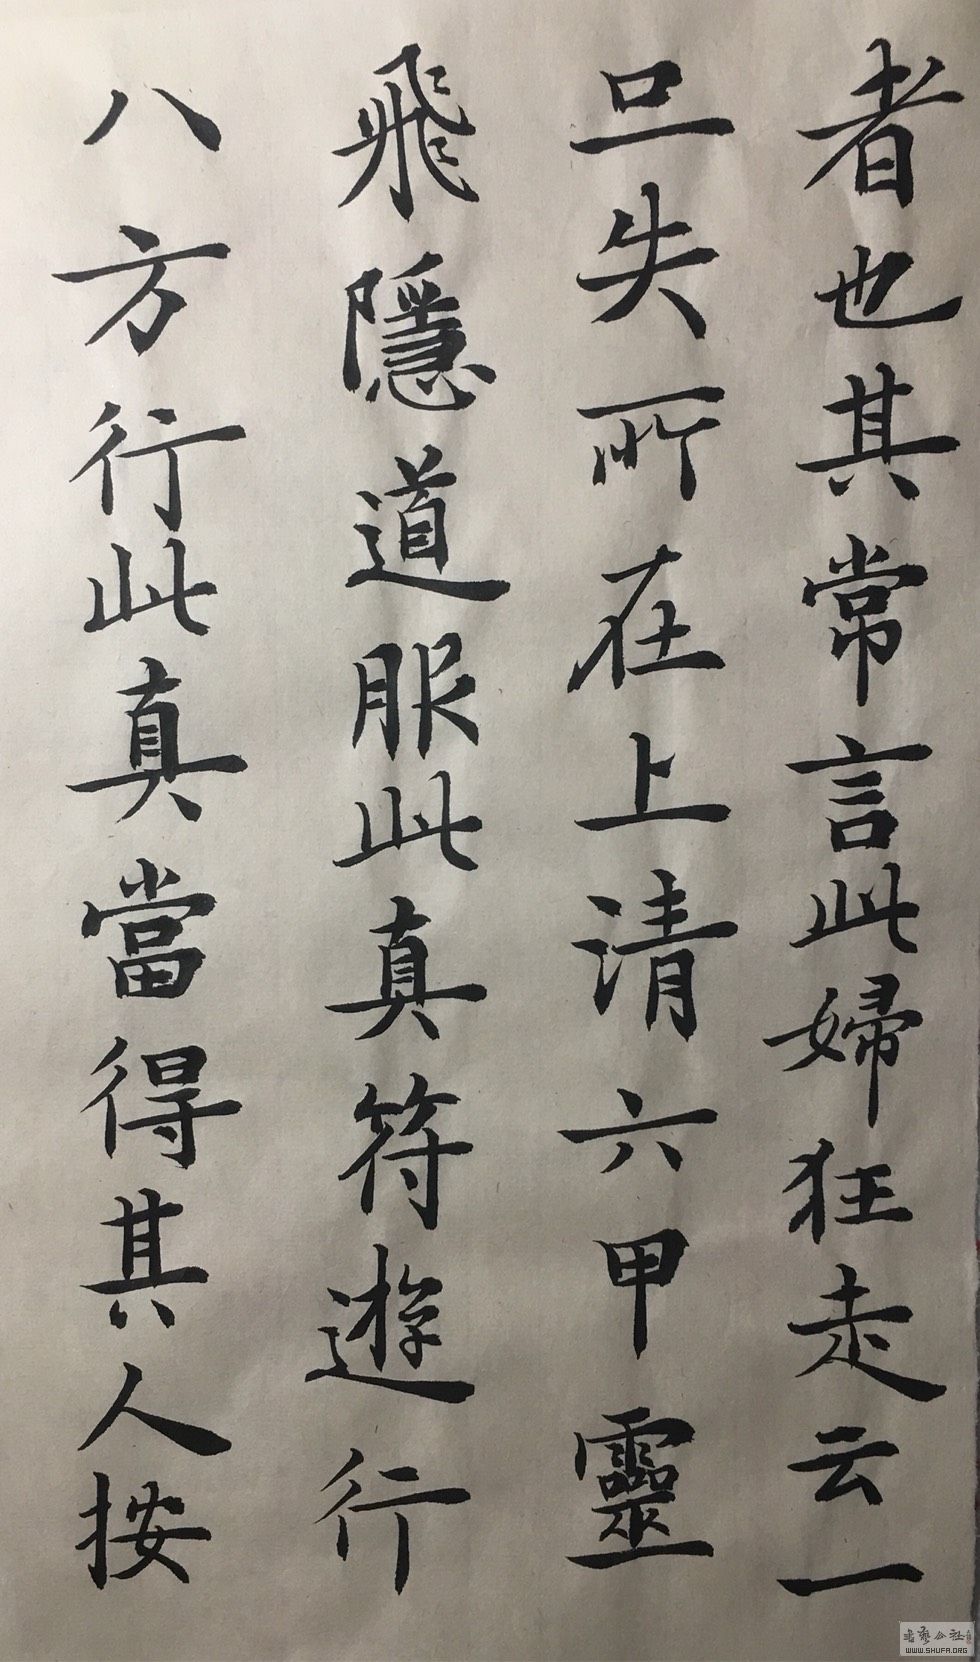 者也其常言此婦狂走云一
旦失所在上清六甲靈
飛隱道服此真符遊行
八方行此真當得其人按
书艺公社
WWW.SHUFA.ORG